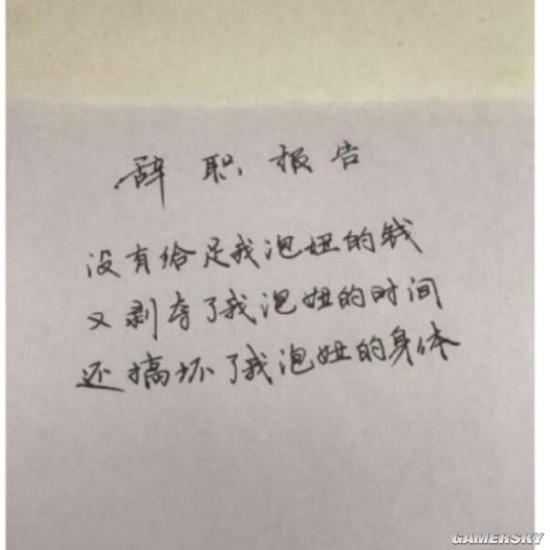 辞职报告
没有给足我泡妞的钱
又剥夺了我泡妞的时间
还搞坏了我泡妞的身体
GAMERSKY